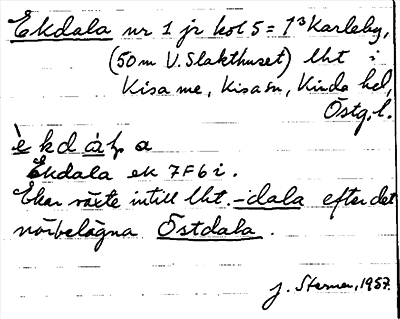 Ekdala nr 1 jr kol 5 = 1³ Karleby,
(50 m V. Slakthuset) lht i
Kisa me, Kisa sn, Kinda hd,
Östg. l.
è k d á l a
Ekdala ek 7F6i.
Ekar växte intill lht. -dala efter det
närbelägna Östdala.
J. Sterner, 1957.